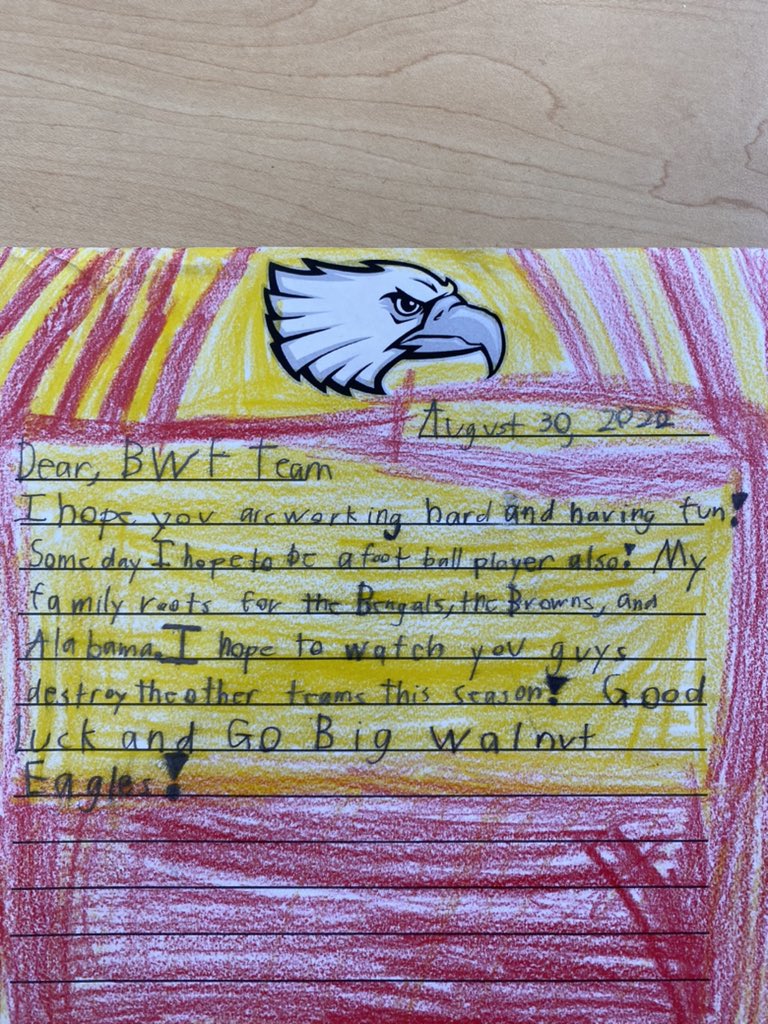 August 30, 2022
Dear, BWF Team
I hope you are working hard and having fun!
Some day I hope to be a foot ball player also! My
family roots for the Bengals, the Browns, and
Alabama. I hope to watch you guys
destroy the other teams this season! Good
Luck and Go Big Walnut
Eagles!